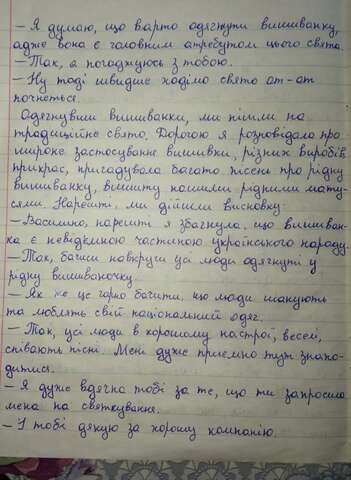 – Я думаю, що варто одягнути вишиванку,
адже вона є головним атрибутом цього свята.
– Так, я погоджуюсь з тобою.
– Ну тоді швидше ходімо свято от-от
почнеться.
Одягнувши вишиванки, ми пішли на
традиційне свято. Дорогою я розповідала про
широке застосування вишивки, різних виробів,
прикрас, пригадувала багато пісень про рідну
вишиванку, вишиту нашими рідними мату-
сями. Нарешті, ми дійшли висновку:
– Василино, нарешті я збагнула, що вишиван-
ка є невід'ємною частиною українського народу.
– Так, бачиш навкруги усі люди одягнуті у
рідну вишиваночку.
– Як же це гарно бачити, що люди шанують
та люблять свій національний одяг.
– Так, усі люди в хорошому настрої, веселі,
співають пісні. Мені дуже приємно тут знахо-
дитися.
– Я дуже вдячна тобі за те, що ти запросила
мене на святкування.
– І тобі дякую за хорошу компанію.